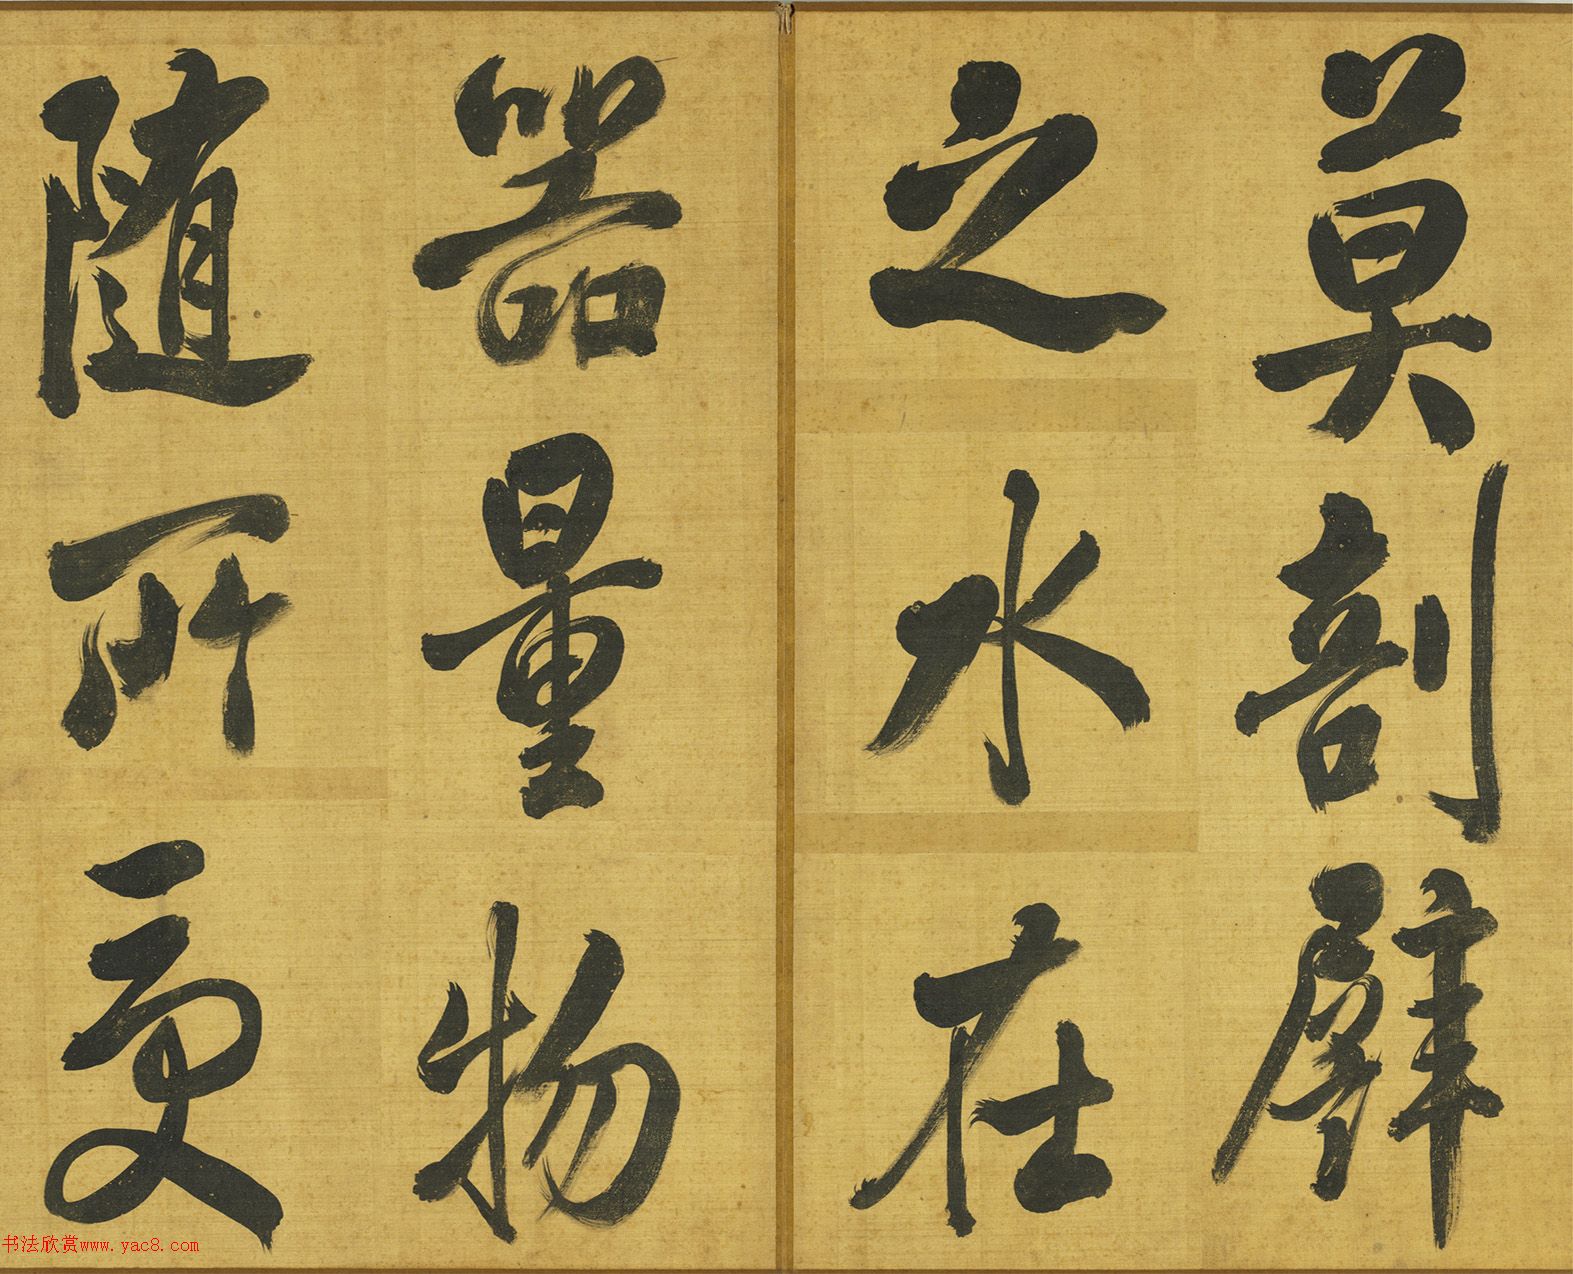 莫剖譬
之水在
器量物
随所受
书法欣赏www.yac8.com